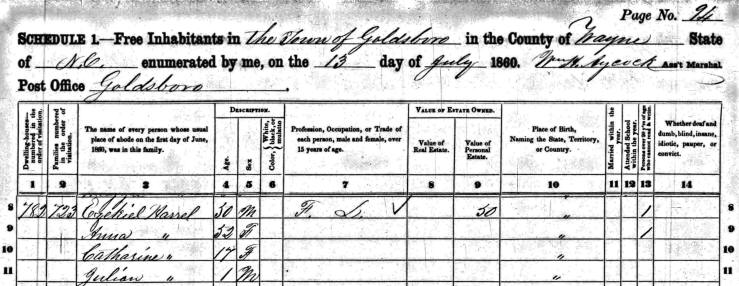 Page No. 94
SCHEDULE 1.—Free Inhabitants in the Town of Goldsboro in the County of Wayne State
of N.C. enumerated by me, on the 13 day of July 1860. Wm H. Aycock Ass't Marshal
Post Office Goldsboro
DESCRIPTION. VALUE OF ESTATE OWNED.
Dwelling-houses—numbered in the order of visitation. Families numbered in the order of visitation. The name of every person whose usual place of abode on the first day of June, 1860, was in this family. Age. Sex. Color, White, black, or mulatto. Profession, Occupation, or Trade of each person, male and female, over 15 years of age. Value of Real Estate. Value of Personal Estate. Place of Birth, Naming the State, Territory, or Country. Married within the year. Attended School within the year. Persons over 20 y'rs of age who cannot read & write. Whether deaf and dumb, blind, insane, idiotic, pauper, or convict.
1 2 3 4 5 6 7 8 9 10 11 12 13 14
8 782 723 Ezekiel Harrel 50 M F. L. ✓ 50 " 1 8
9 Anna " 52 F " 1 9
10 Catharine " 17 F " 10
11 Julian " 1 M " 11